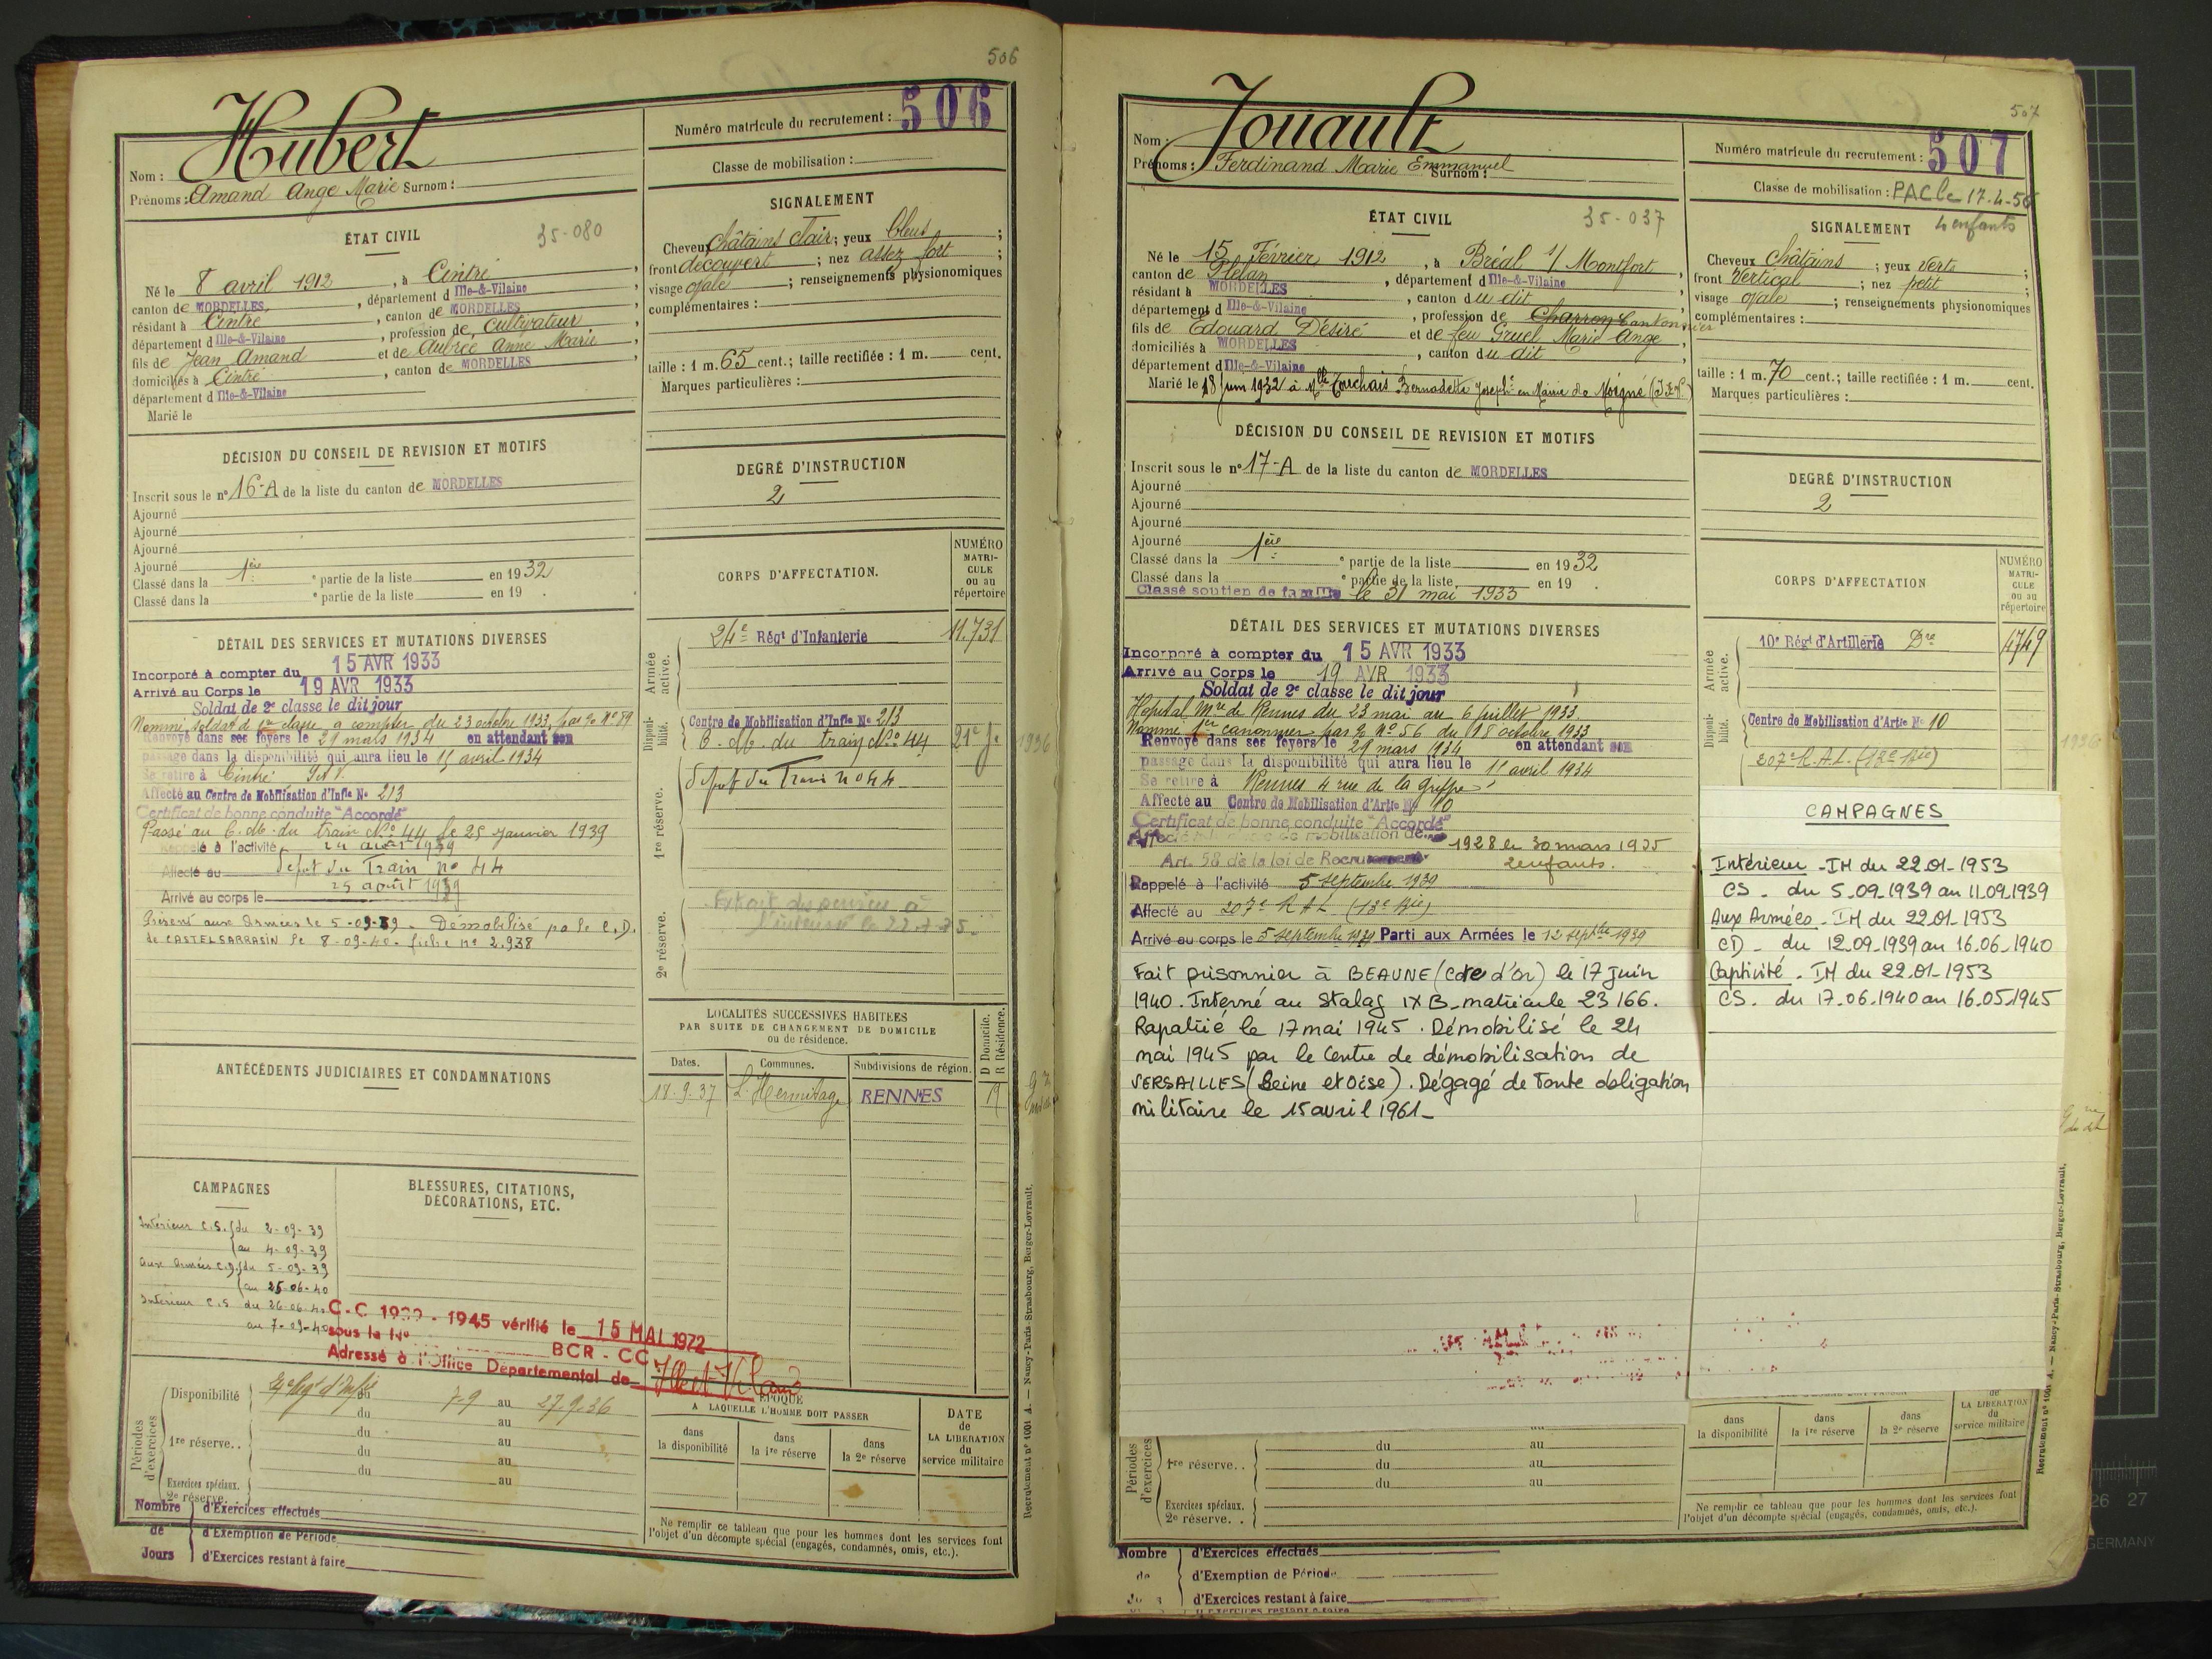 506
Hubert
Nom :
Prénoms : Amand Ange Marie Surnom :
Numéro matricule du recrutement : 506
Classe de mobilisation :
ÉTAT CIVIL
35-080
Né le 8 avril 1912, à Cintré,
canton de MORDELLES, département d Ille-&-Vilaine,
résidant à Cintré, canton de MORDELLES,
département d Ille-&-Vilaine, profession de cultivateur,
fils de Jean Amand et de Aubrée Anne Marie,
domiciliés à Cintré, canton de MORDELLES,
département d Ille-&-Vilaine
Marié le
SIGNALEMENT
Cheveux châtains clair ; yeux bleus ;
front découvert ; nez assez fort ;
visage ovale ; renseignements physionomiques
complémentaires :
taille : 1 m. 65 cent.; taille rectifiée : 1 m. cent.
Marques particulières :
DÉCISION DU CONSEIL DE REVISION ET MOTIFS
Inscrit sous le n° 16-A de la liste du canton de MORDELLES
Ajourné
Ajourné
Ajourné
Ajourné
Classé dans la 1ère partie de la liste en 1932
Classé dans la e partie de la liste en 19 .
DEGRÉ D'INSTRUCTION
2
DÉTAIL DES SERVICES ET MUTATIONS DIVERSES
Incorporé à compter du 15 AVR 1933
Arrivé au Corps le 19 AVR 1933
Soldat de 2e classe le dit jour
Nommé soldat d 1re classe a compter du 23 octobre 1933 par % N° 89
Renvoyé dans ses foyers le 29 mars 1934 en attendant son
passage dans la disponibilité qui aura lieu le 15 avril 1934
Se retire à Cintré I et V.
Affecté au Centre de Mobilisation d'Infie No 213
Certificat de bonne conduite "Accordé"
Passé au C. M. du train No 44 le 25 janvier 1939
Rappelé à l'activité 24 août 1939
Affecté au Dépot du Train no 44
Arrivé au corps le 25 août 1939
Présent aux Armées le 5-09-39 - Démobilisé pa le C.D.
de CASTELSARRASIN le 8-09-40 - fiche no 2.938
CORPS D'AFFECTATION.
NUMÉRO
MATRI-
CULE
ou au
répertoire
Armée active.
24e Régt d'Infanterie 11.731
Disponi-bilité.
Centre de Mobilisation d'Infie No 213
C. M. du train No 44
1936
1re réserve.
Dépot du Train no 44
2e réserve.
LOCALITÉS SUCCESSIVES HABITÉES
PAR SUITE DE CHANGEMENT DE DOMICILE
ou de résidence.
D Domicile.
R Résidence.
Dates.
Communes.
Subdivisions de région.
18.9.37 L'Hermitage RENNES
ANTÉCÉDENTS JUDICIAIRES ET CONDAMNATIONS
CAMPAGNES
Intérieur C.S. du 2-09-39
au 4-09-39
aux Armées C.D. du 5-09-39
au 25-06-40
Intérieur C.S du 26-06-40
au 7-09-40
BLESSURES, CITATIONS,
DÉCORATIONS, ETC.
C.C 1939 - 1945 vérifié le 15 MAI 1972
sous le No
BCR - CC
Adressé à l'Office Départemental de Ille et Vilaine
Périodes d'exercices
Disponibilité du 7-9 au 27.9.36
du au
1re réserve.. du au
du au
du au
Exercices spéciaux.
2e réserve.
Nombre de Jours
d'Exercices effectués
d'Exemption de Période
d'Exercices restant à faire
ÉPOQUE
A LAQUELLE L'HOMME DOIT PASSER
dans la disponibilité
dans la 1re réserve
dans la 2e réserve
DATE
de
LA LIBÉRATION
du
service militaire
Ne remplir ce tableau que pour les hommes dont les services font
l'objet d'un décompte spécial (engagés, condamnés, omis, etc.).
Recrutement n° 1001 A. — Nancy-Paris-Strasbourg, Berger-Levrault.
507
Jouault
Nom :
Prénoms : Ferdinand Marie Emmanuel
Surnom :
Numéro matricule du recrutement : 507
Classe de mobilisation : PAC le 17-4-56
4 enfants
ÉTAT CIVIL
35-037
Né le 15 Février 1912, à Bréal s/ Montfort,
canton de Plélan, département d Ille-&-Vilaine,
résidant à MORDELLES, canton du dit,
département d Ille-&-Vilaine, profession de Charron Cantonnier
fils de Edouard Désiré et de feu Gruel Marie Ange,
domiciliés à MORDELLES, canton du dit,
département d Ille-&-Vilaine
Marié le 18 Juin 1932 à Mlle Bernadette Josephe en Mairie de Moigné (I.&V.)
SIGNALEMENT
Cheveux châtains ; yeux verts ;
front vertical ; nez petit ;
visage ovale ; renseignements physionomiques
complémentaires :
taille : 1 m. 70 cent.; taille rectifiée : 1 m. cent.
Marques particulières :
DÉCISION DU CONSEIL DE REVISION ET MOTIFS
Inscrit sous le n° 17-A de la liste du canton de MORDELLES
Ajourné
Ajourné
Ajourné
Ajourné
Classé dans la 1ère partie de la liste en 1932
Classé dans la e partie de la liste en 19 .
Classé soutien de famille le 31 mai 1933
DEGRÉ D'INSTRUCTION
2
DÉTAIL DES SERVICES ET MUTATIONS DIVERSES
Incorporé à compter du 15 AVR 1933
Arrivé au Corps le 19 AVR 1933
Soldat de 2e classe le dit jour
Hopital Mre de Rennes du 23 mai au 6 juillet 1933.
Nommé 1er canonnier par % No 56 du 18 octobre 1933
Renvoyé dans ses foyers le 29 mars 1934 en attendant son
passage dans la disponibilité qui aura lieu le 15 avril 1934
Se retire à Rennes 4 rue de la Griffe
Affecté au Centre de Mobilisation d'Artie No 10
Certificat de bonne conduite "Accordé"
Affecté à la classe de mobilisation de 1928 le 30 mars 1935
Art. 58 de la loi de Recrutement 2 enfants.
Rappelé à l'activité 5 septembre 1939
Affecté au 207e RAL (13e Bie)
Arrivé au corps le 5 septembre 1939 Parti aux Armées le 12 septbre 1939
Fait prisonnier à BEAUNE (Cote d'Or) le 17 juin
1940. Interné au Stalag IX B_ matricule 23 166.
Rapatrié le 17 mai 1945. Démobilisé le 24
mai 1945 par le Centre de démobilisation de
VERSAILLES (Seine et Oise). Dégagé de toute obligation
militaire le 15 avril 1961_
CORPS D'AFFECTATION
NUMÉRO
MATRI-
CULE
ou au
répertoire
Armée active.
10e Régt d'Artillerie Dre 4749
Disponi-bilité.
Centre de Mobilisation d'Artie No 10
207e R.A.L. (13e Bie)
1936
CAMPAGNES
Intérieur - IM du 22.01-1953
CS - du 5.09.1939 au 11.09.1939
Aux Armées - IM du 22.01-1953
CD - du 12.09.1939 au 16.06.1940
Captivité - IM du 22.01-1953
CS. du 17.06.1940 au 16.05.1945
Périodes d'exercices
du au
1re réserve.. du au
du au
Exercices spéciaux.
2e réserve. .
dans la disponibilité
dans la 1re réserve
dans la 2e réserve
de
LA LIBÉRATION
du
service militaire
Ne remplir ce tableau que pour les hommes dont les services font
l'objet d'un décompte spécial (engagés, condamnés, omis, etc.).
Nombre
de
d'Exercices effectués
d'Exemption de Période
d'Exercices restant à faire
Recrutement n° 1001 A. — Nancy-Paris-Strasbourg, Berger-Levrault.
26 27
GERMANY